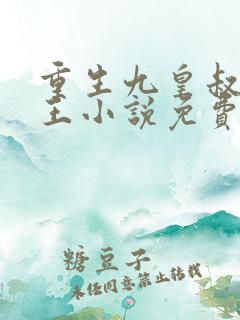 重生九皇叔
王小说免费
糖豆子
未经同意禁止转载